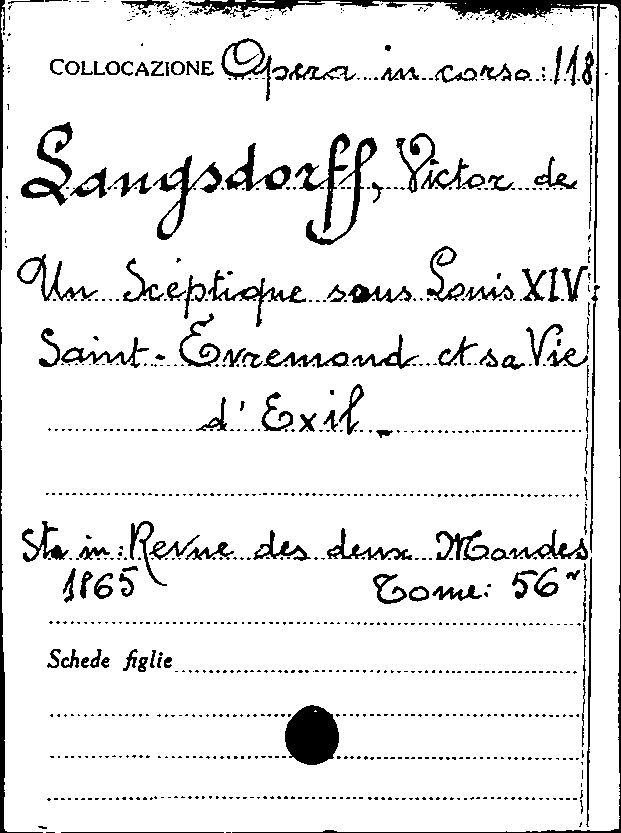 COLLOCAZIONE Opera in corso: 118
Langsdorff, Victor de
Un Scéptique sous Louis XIV:
Saint-Evremond et sa Vie
d'Exil.
Sta in: Revue des deux Mondes
1865 Tome: 56"
Schede figlie